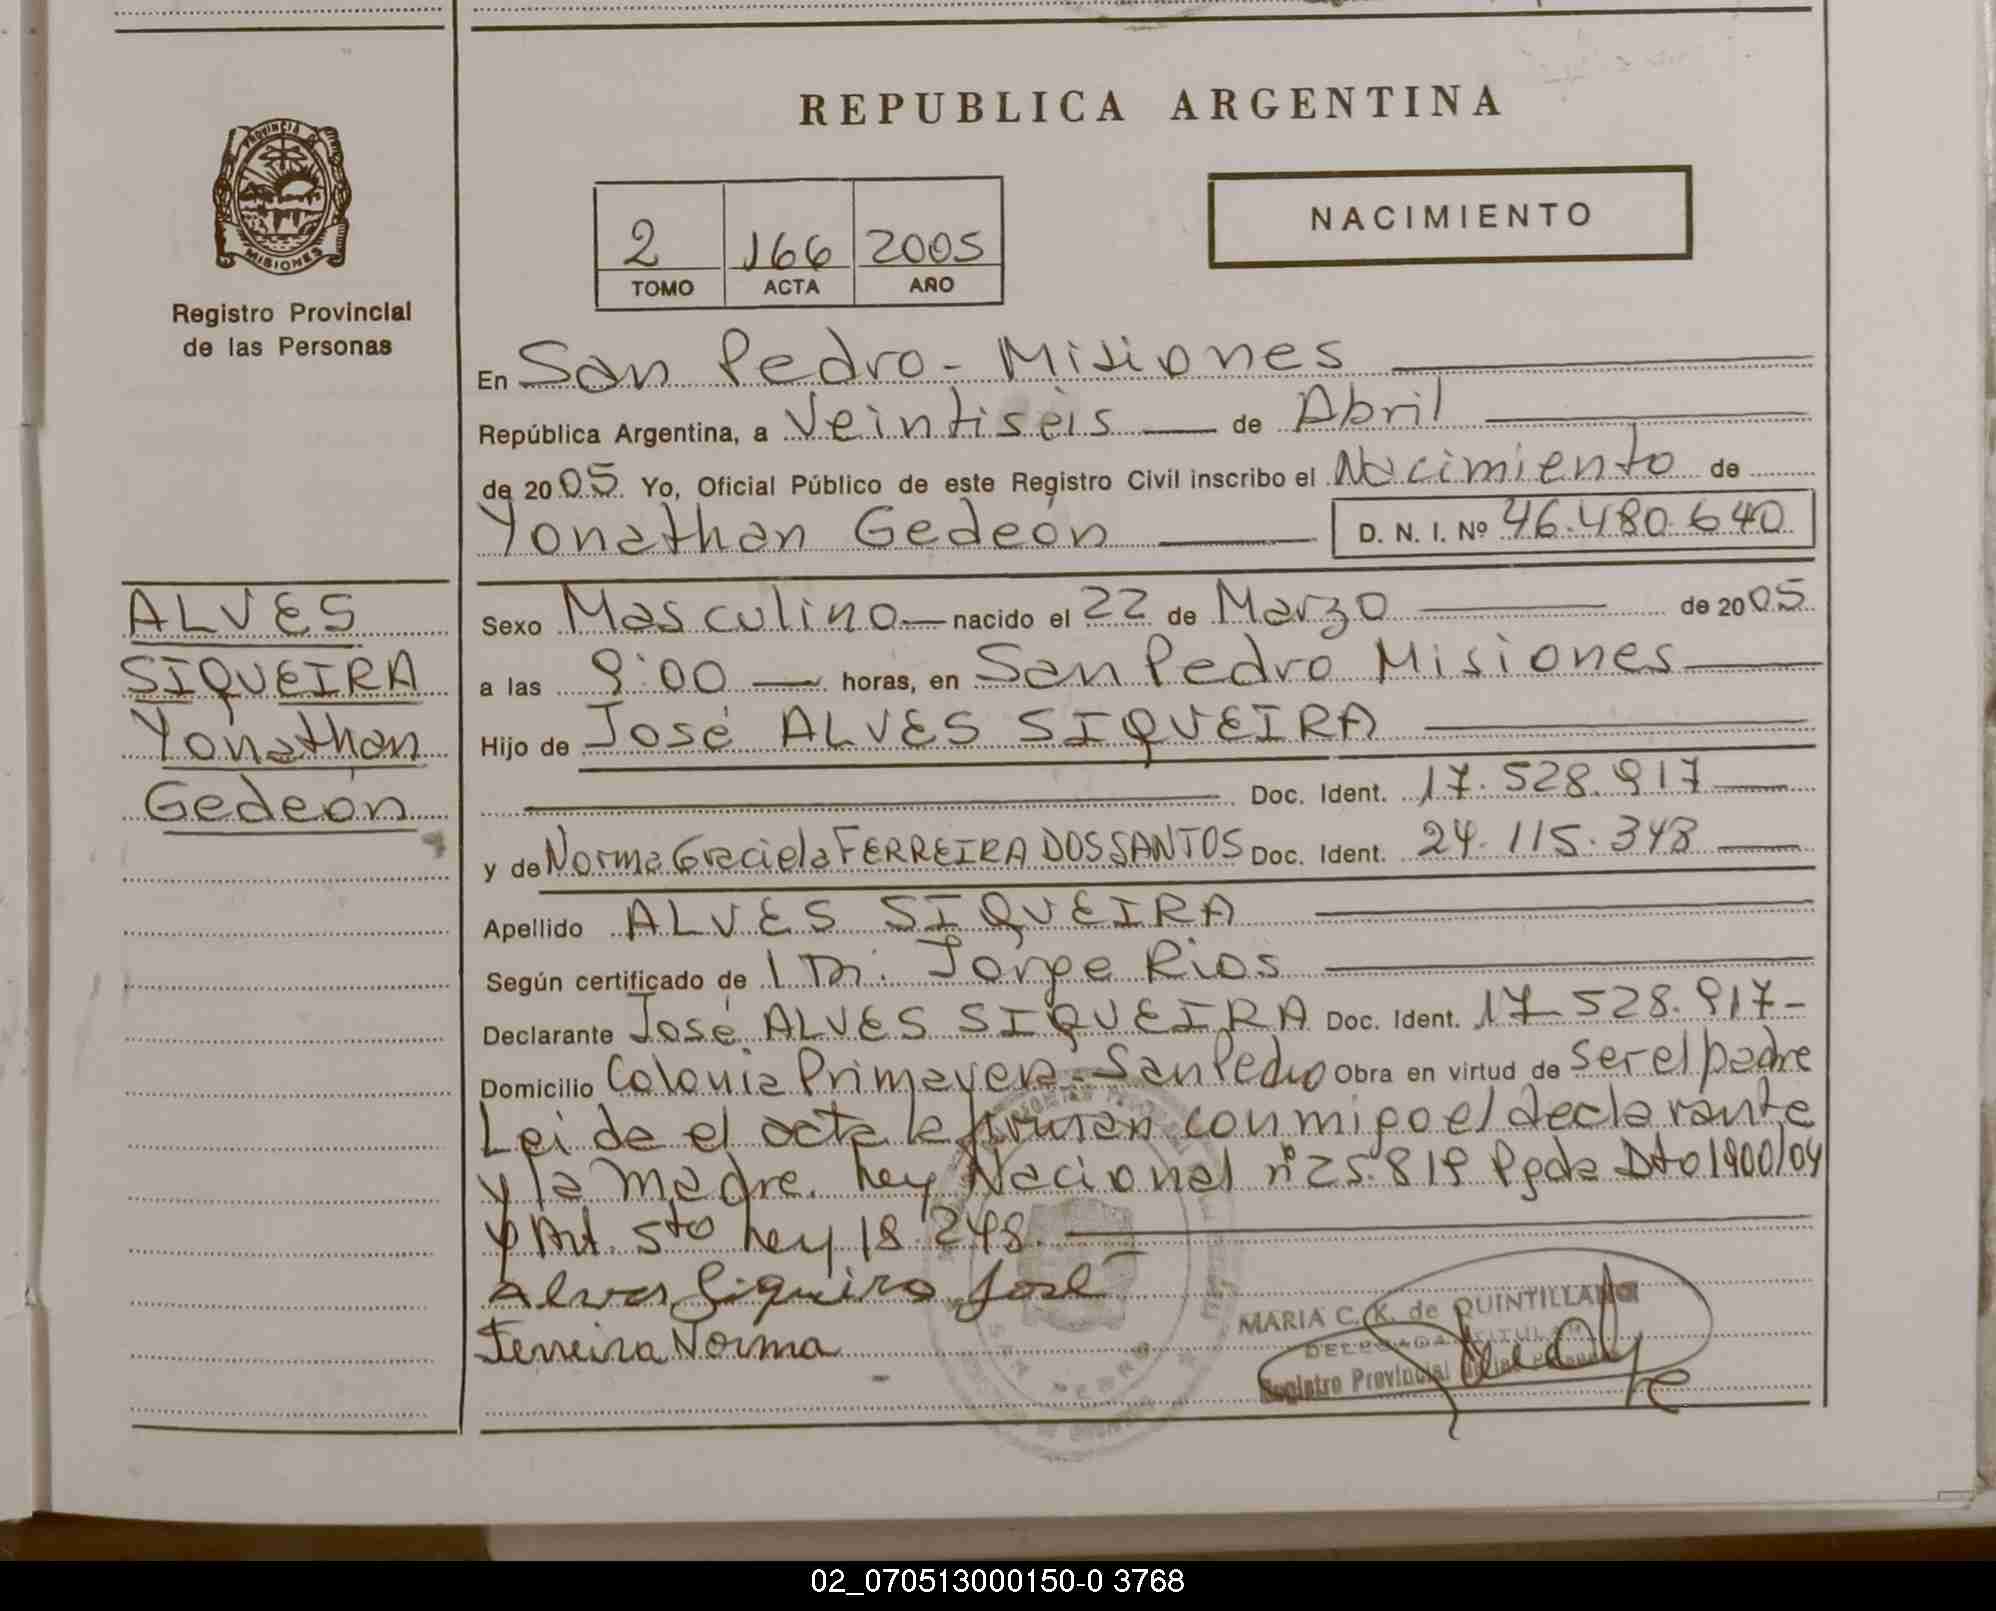 REPUBLICA ARGENTINA
PROVINCIA DE
MISIONES
Registro Provincial
de las Personas
2 166 2005
TOMO ACTA AÑO
NACIMIENTO
En San Pedro - Misiones
República Argentina, a Veintiseis de Abril
de 2005 Yo, Oficial Público de este Registro Civil inscribo el Nacimiento de
Yonathan Gedeón D. N. I. Nº 46.480.640
ALVES
SIQUEIRA
Yonathan
Gedeón
Sexo Masculino nacido el 22 de Marzo de 2005
a las 9:00 horas, en San Pedro Misiones
Hijo de José ALVES SIQUEIRA
Doc. Ident. 17.528.917
y de Norma Graciela FERREIRA DOS SANTOS Doc. Ident. 24.115.348
Apellido ALVES SIQUEIRA
Según certificado de Jorge Rios
Declarante José ALVES SIQUEIRA Doc. Ident. 17.528.917-
Domicilio Colonia Primavera - San Pedro Obra en virtud de ser el padre
Leida el acta la firman conmigo el declarante
y la madre. Ley Nacional nº 25.819 Pgda Dto 1900/04
y Art. 5to Ley 18.248.
Alves Siqueira José
Ferreira Norma
MARIA C. K. de QUINTILLAN
DELEGADA TITULAR
Registro Provincial de las Personas
SAN PEDRO
02_070513000150-0 3768